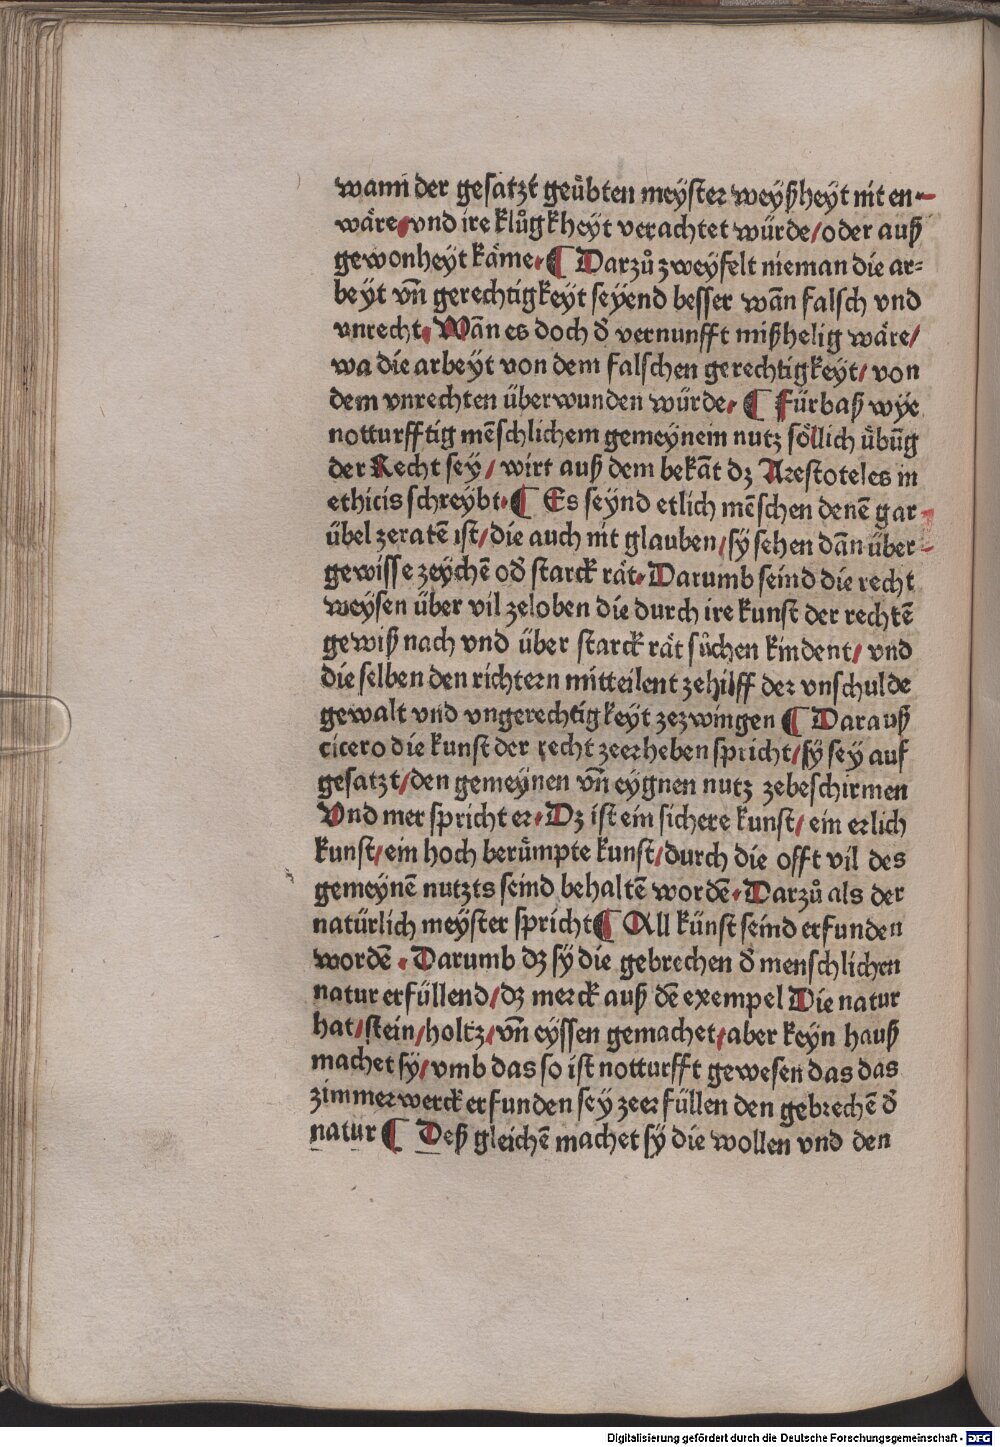 wann der gesatzt geuͤbten meÿster weÿßheÿt nit en-
wäre/vnd ire kluͦgkheÿt verachtet würde/oder auß
gewonheÿt käme. ¶ Darzuͦ zweÿfelt nieman die ar⸗
beÿt vñ gerechtigkeÿt seÿend besser wañ falsch vnd
vnrecht. Wañ es doch d̕ vernunfft mißhelig wäre/
wa die arbeÿt von dem falschen gerechtigkeÿt/von
dem vnrechten überwunden würde. ¶ Fürbaß wÿe
notturfftig mẽschlichem gemeÿnem nutz söllich uͤbũg
der Recht seÿ/wirt auß dem bekãt dz Arestoteles in
ethicis schreÿbt. ¶ Es seÿnd etlich mẽschen denẽ gar
übel zeratẽ ist/die auch nit glauben/sÿ sehen dañ über-
gewisse zeÿchẽ od̕ starck rät. Darumb seind die recht
weÿsen über vil zeloben die durch ire kunst der rechtẽ
gewiß nach vnd über starck rät suͦchen kindent/vnd
die selben den richtern mitteilent zehilff der vnschulde
gewalt vnd vngerechtigkeÿt zezwingen ¶ Darauß
cicero die kunst der recht zeerheben spricht/sÿ seÿ auf
gesatzt/den gemeÿnen vñ eÿgnen nutz zebeschirmen
Vnd mer spricht er. Dz ist ein sichere kunst/ein erlich
kunst/ein hoch beruͤmpte kunst/durch die offt vil des
gemeÿnẽ nutzts seind behaltẽ wordẽ. Darzuͦ als der
natürlich meÿster spricht ¶ All künst seind erfunden
wordẽ. Darumb dz sÿ die gebrechen d̕ menschlichen
natur erfüllend/dz merck auß dẽ exempel Die natur
hat/stein/holtz/vñ eÿssen gemachet/aber keÿn hauß
machet sÿ/vmb das so ist notturfft gewesen das das
zimmerwerck erfunden seÿ zeerfüllen den gebrechẽ d̕
natur ¶ Deß gleichẽ machet sÿ die wollen vnd den
Digitalisierung gefördert durch die Deutsche Forschungsgemeinschaft - DFG